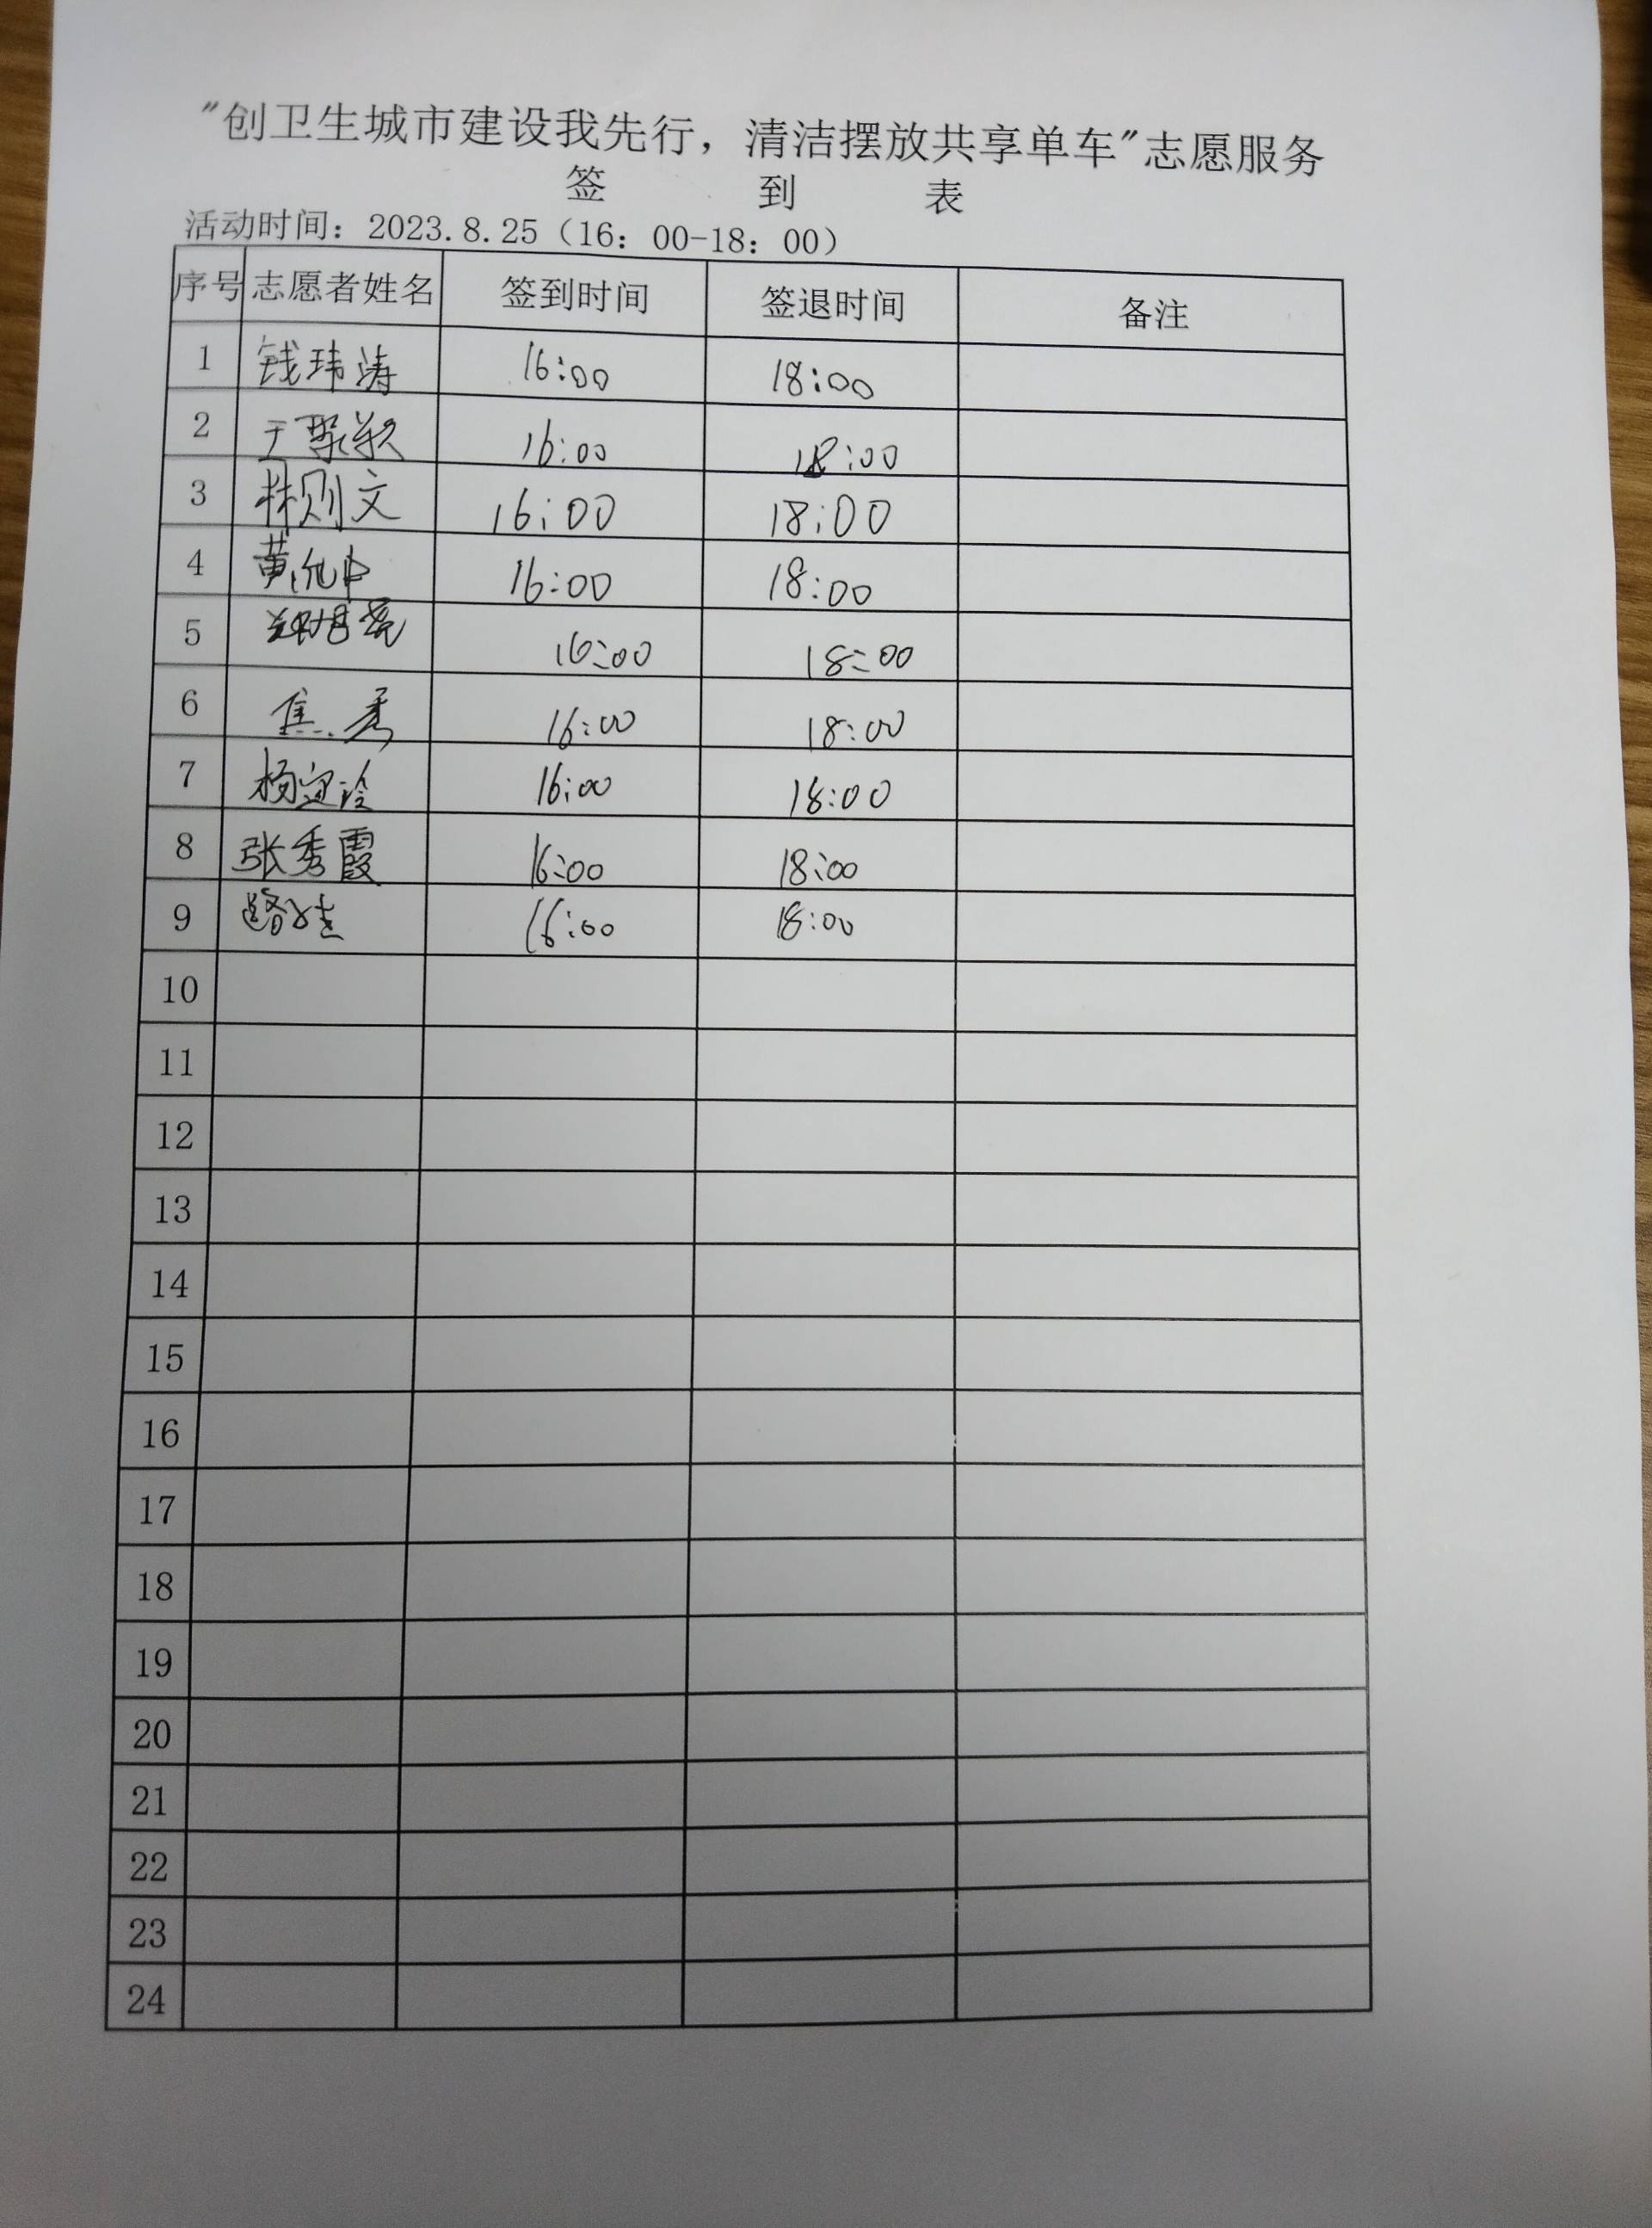 "创卫生城市建设我先行，清洁摆放共享单车"志愿服务
签 到 表
活动时间：2023.8.25（16：00-18：00）
序号 志愿者姓名 签到时间 签退时间 备注
1 钱玮涛 16:00 18:00
2 于 16:00 18:00
3 林则文 16:00 18:00
4 黄 16:00 18:00
5 16:00 18:00
6 焦秀 16:00 18:00
7 杨 16:00 18:00
8 张秀霞 16:00 18:00
9 16:00 18:00
10
11
12
13
14
15
16
17
18
19
20
21
22
23
24